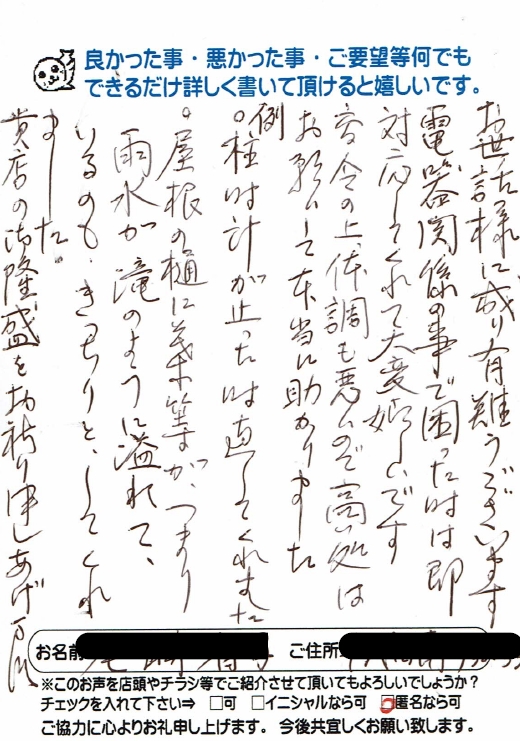 良かった事・悪かった事・ご要望等何でも
できるだけ詳しく書いて頂けると嬉しいです。
お世話様に成り有難うございます
電器関係の事で困った時は即
対応してくれて大変嬉しいです
高令の上、体調も悪いので高い処は
お願いして本当に助かりました
例
○柱時計が止った時直してくれました
○屋根の樋に葉等が、つまり
雨水が滝のように溢れて、
いるのも、きっちりと、してくれ
ました。
貴店の御隆盛をお祈り申しあげます
お名前
ご住所
※このお声を店頭やチラシ等でご紹介させて頂いてもよろしいでしょうか？
チェックを入れて下さい⇒ □可 □イニシャルなら可 □匿名なら可
ご協力に心よりお礼申し上げます。 今後共宜しくお願い致します。